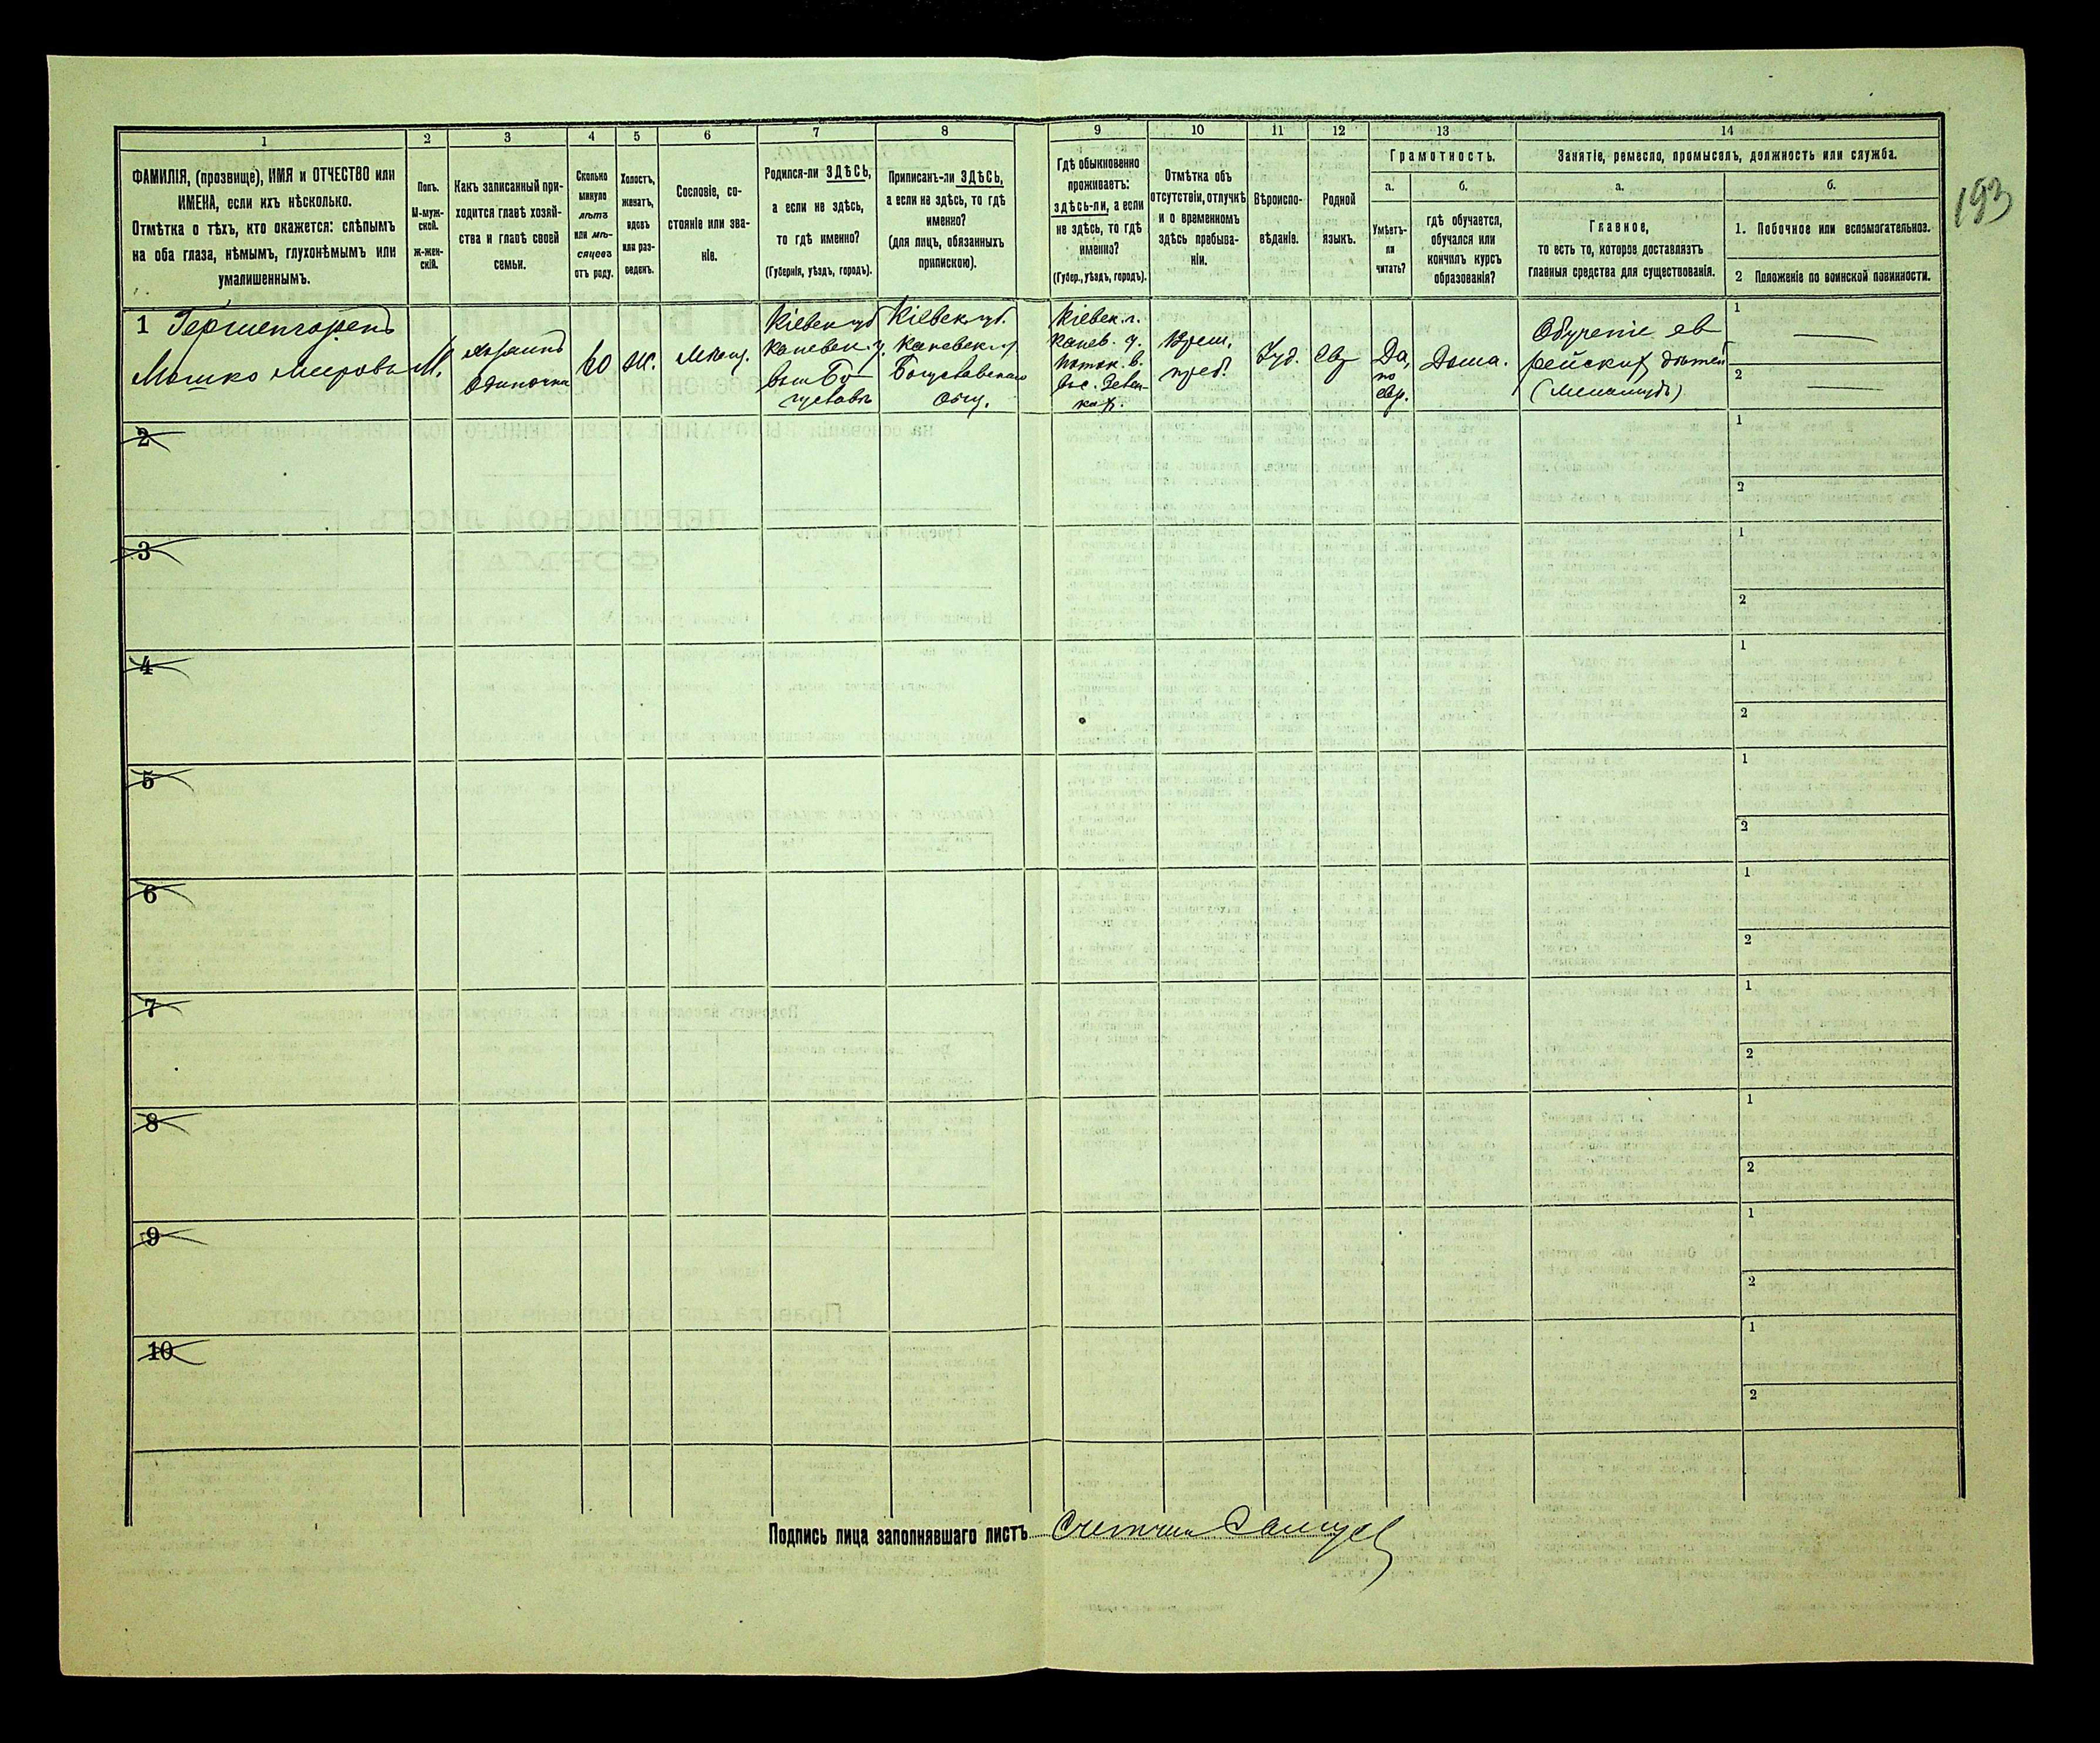 193
1
ФАМИЛІЯ, (прозвище), ИМЯ и ОТЧЕСТВО или
ИМЕНА, если ихъ нѣсколько.
Отмѣтка о тѣхъ, кто окажется: слѣпымъ
на оба глаза, нѣмымъ, глухонѣмымъ или
умалишеннымъ.
2
Полъ.
М-муж-
ской.
Ж-жен-
скій.
3
Какъ записанный при-
ходится главѣ хозяй-
ства и главѣ своей
семьи.
4
Сколько
минуло
лѣтъ
или мѣ-
сяцевъ
отъ роду.
5
Холостъ,
женатъ,
вдовъ
или раз-
веденъ.
6
Сословіе, со-
стояніе или зва-
ніе.
7
Родился-ли ЗДѢСЬ,
а если не здѣсь,
то гдѣ именно?
(Губернія, уѣздъ, городъ).
8
Приписанъ-ли ЗДѢСЬ,
а если не здѣсь, то гдѣ
именно?
(для лицъ, обязанныхъ
припискою).
9
Гдѣ обыкновенно
проживаетъ:
здѣсь-ли, а если
не здѣсь, то гдѣ
именно?
(Губер., уѣздъ, городъ).
10
Отмѣтка объ
отсутствіи, отлучкѣ
и о временномъ
здѣсь пребыва-
ніи.
11
Вѣроиспо-
вѣданіе.
12
Родной
языкъ.
13
Грамотность.
а.
Умѣетъ-
ли
читать?
б.
гдѣ обучается,
обучался или
кончилъ курсъ
образованія?
14
Занятіе, ремесло, промыселъ, должность или служба.
а.
Главное,
то есть то, которое доставляетъ
главныя средства для существованія.
б.
1. Побочное или вспомогательное.
2 Положеніе по воинской повинности.
1 Гершенгоренъ
Мошко Мееровъ
М.
хозяинъ
Одиночка
60
Ж.
Мѣщ.
Кіевск губ
Каневск. у.
Бо
гуславъ
Кіевск губ.
Каневск у
Богуславскаго
общ.
Кіевск. г.
Канев. у.
Поток. в.
Врем.
преб.
Іуд.
Евр
Да,
по
евр.
Дома.
Обученіе ев
рейских дѣтей
(Меламудъ)
1
2
2
1
2
3
1
2
4
1
2
5
1
2
6
1
2
7
1
2
8
1
2
9
1
2
10
1
2
Подпись лица заполнявшаго листъ Счетчик